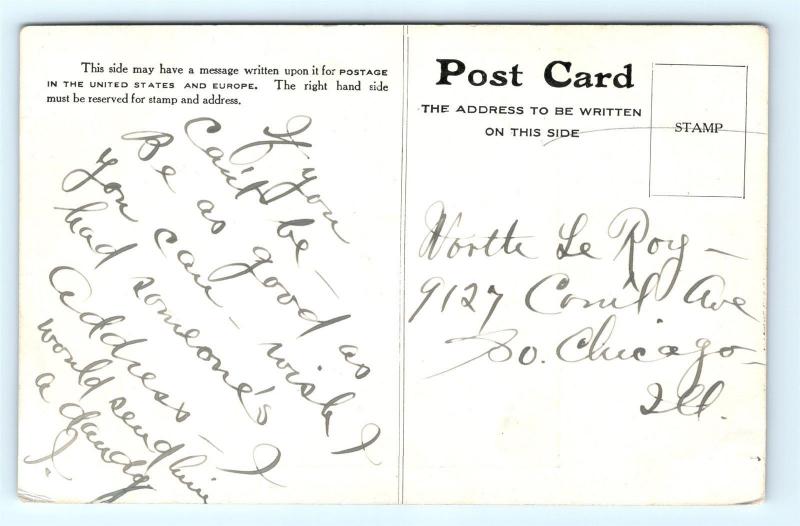 This side may have a message written upon it for POSTAGE
IN THE UNITED STATES AND EUROPE. The right hand side
must be reserved for stamp and address.
If you
can't be –
Be as good as
you can – wish I
had someone's
Address – I
would send him
a dandy
J.
Post Card
THE ADDRESS TO BE WRITTEN
ON THIS SIDE
STAMP
Le Roy –
9127 Ave
So. Chicago –
Ill.